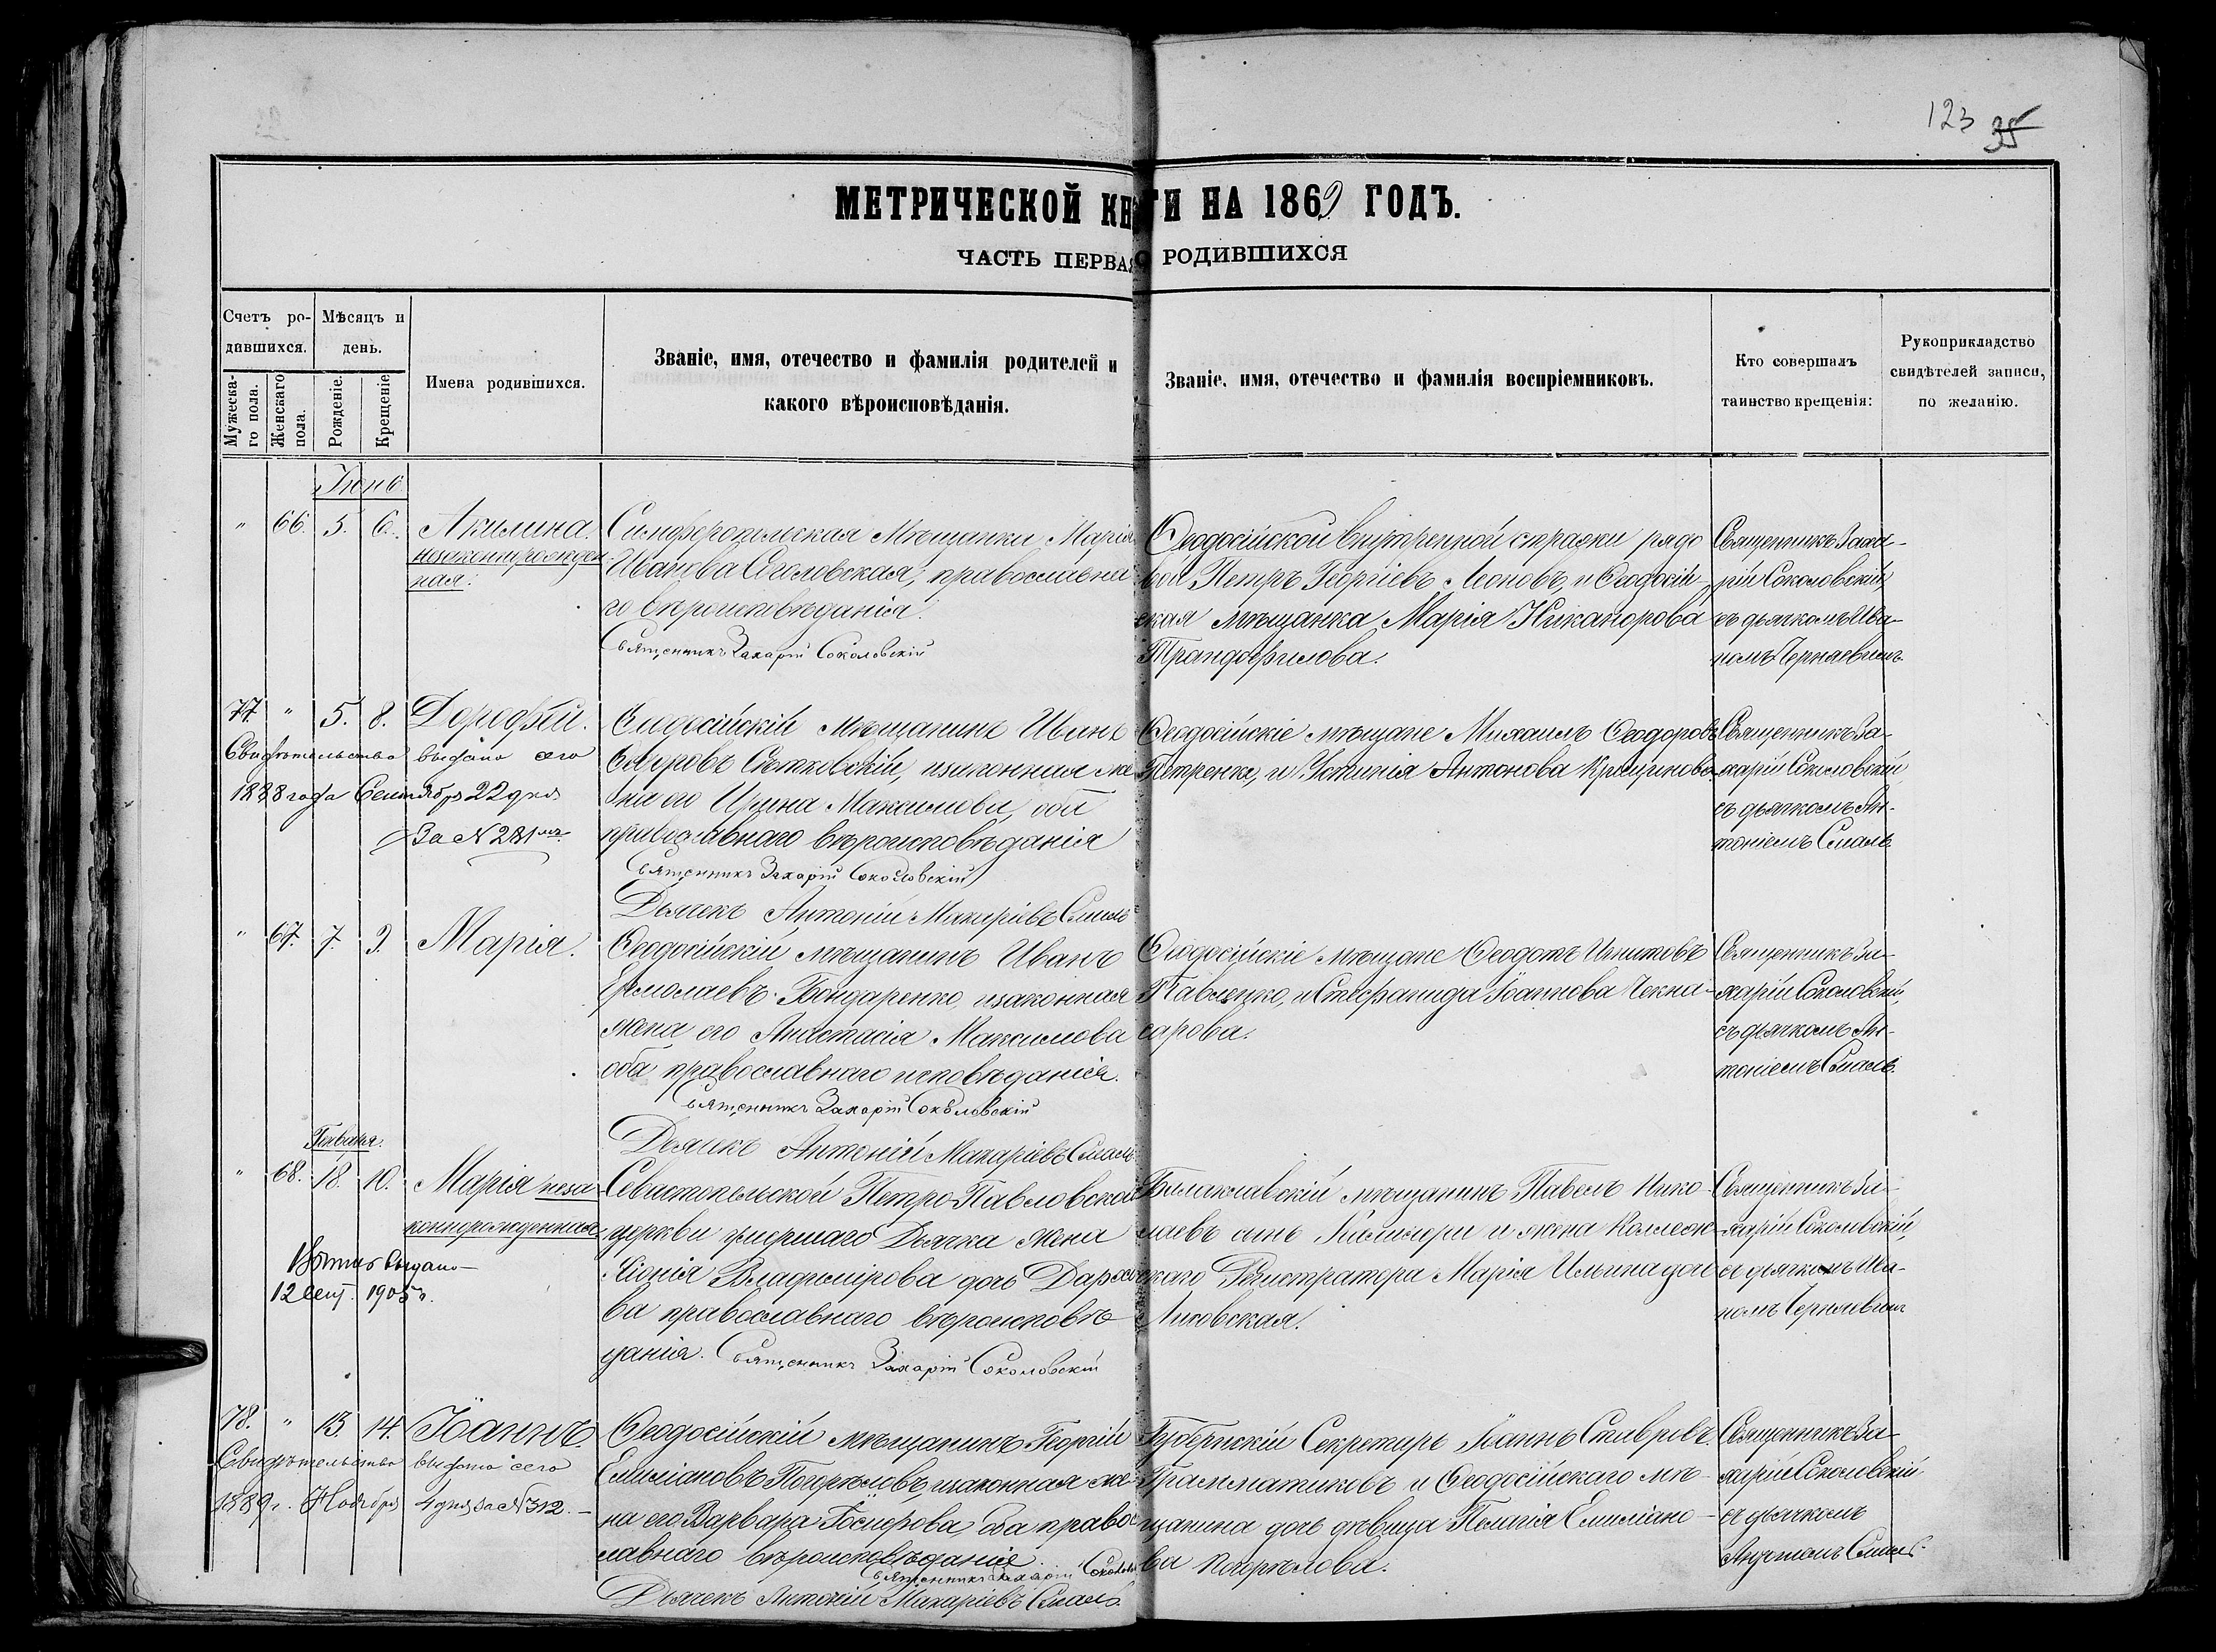 123 35
МЕТРИЧЕСКОЙ КНИГИ НА 1869 ГОДЪ.
ЧАСТЬ ПЕРВАЯ О РОДИВШИХСЯ
Счетъ ро-
дившихся.
Мужеска-
го пола.
Женскаго
пола.
Мѣсяцъ и
день.
Рожденіе.
Крещеніе
Имена родившихся.
Званіе, имя, отечество и фамилія родителей и
какого вѣроисповѣданія.
Званіе, имя, отечество и фамилія воспріемниковъ.
Кто совершалъ
таинство крещенія:
Рукоприкладство
свидѣтелей записи,
по желанію.
Іюнь.
" 66. 5. 6. Акилина.
незаконнорожден-
ная.
Симферопольская Мѣщанка Марія
Иванова православна-
го вѣроисповѣданія.
Священникъ Захарій Соколовскій
Ѳеодосійской внутренной стражи рядо
вой Петръ Георгіевъ Леоновъ, и Ѳеодосій-
ская мѣщанка Марія Никанорова
Трандофилова.
Священникъ Заха-
рій Соколовскій,
съ дьячкомъ Ива-
номъ Чернявскимъ.
77. " 5. 8. Дорофей.
Свидѣтельство выдано сего
1888 года Сентября 22 дня
За N 281мъ
Ѳеодосійскій Мѣщанинъ Иванъ
Ѳедоровъ Сѣтковскій, и законная же-
на его Ирина Максимова, оба
православнаго вѣроисповѣданія
Священникъ Захарій Соколовскій
Дьячекъ Антоній Макаріевъ Смаль
Ѳеодосійскіе мѣщане Михаилъ Ѳеодоровъ
Петренко, и Устинія Антонова
Священникъ За-
харій Соколовскій
съ дьячкомъ Ан-
тоніемъ Смаль.
" 67. 7. 9. Марія.
Ѳеодосійскій мѣщанинъ Иванъ
Ермолаевъ Бондаренко, и законная
жена его Анастасія Максимова
оба православнаго исповѣданія.
Священникъ Захарій Соколовскій
Дьячекъ Антоній Макаріевъ Смаль
Ѳеодосійскіе мѣщане Ѳеодотъ Игнатовъ
Павленко, и Стефанида Іоаннова Чекна-
сарова.
Священникъ За-
харій Соколовскій,
съ дьячкомъ Ан-
тоніемъ Смаль.
Генваря.
" 68. 18. 10. Марія неза-
коннорожденная
выдано
12 Сент. 1905 г.
Севастопольской Петро-Павловской
церкви умершаго Дьячка жена
Хіонія Владимірова дочь
ва православнаго вѣроисповѣ
данія. Священникъ Захарій Соколовскій
Балаклавскій мѣщанинъ Павелъ Нико-
лаевъ сынъ и жена Коллеж-
скаго Регистратора Марія Ильина дочь
Священникъ За-
харій Соколовскій,
съ дьячкомъ Ива-
номъ Чернявскимъ
78. " 13. 14. Іоаннъ.
Свидѣтельство выдано сего
1889 г. Ноября 4 дня за N 312.
Ѳеодосійскій мѣщанинъ Георгій
Емиліановъ Погорѣловъ, и законная же-
на его Варвара Іосифова, оба правос-
лавнаго вѣроисповѣданія.
Священникъ Захарій Соколовскій
Дьячекъ Антоній Макаріевъ Смаль
Губернскій Секретарь Іоаннъ Ставровъ
Грамматиковъ и Ѳеодосійскаго мѣ-
щанина дочь дѣвица Пелагія Емиліано-
ва Погорѣлова.
Священникъ За-
харій Соколовскій
съ дьячкомъ
Антоніемъ Смаль.